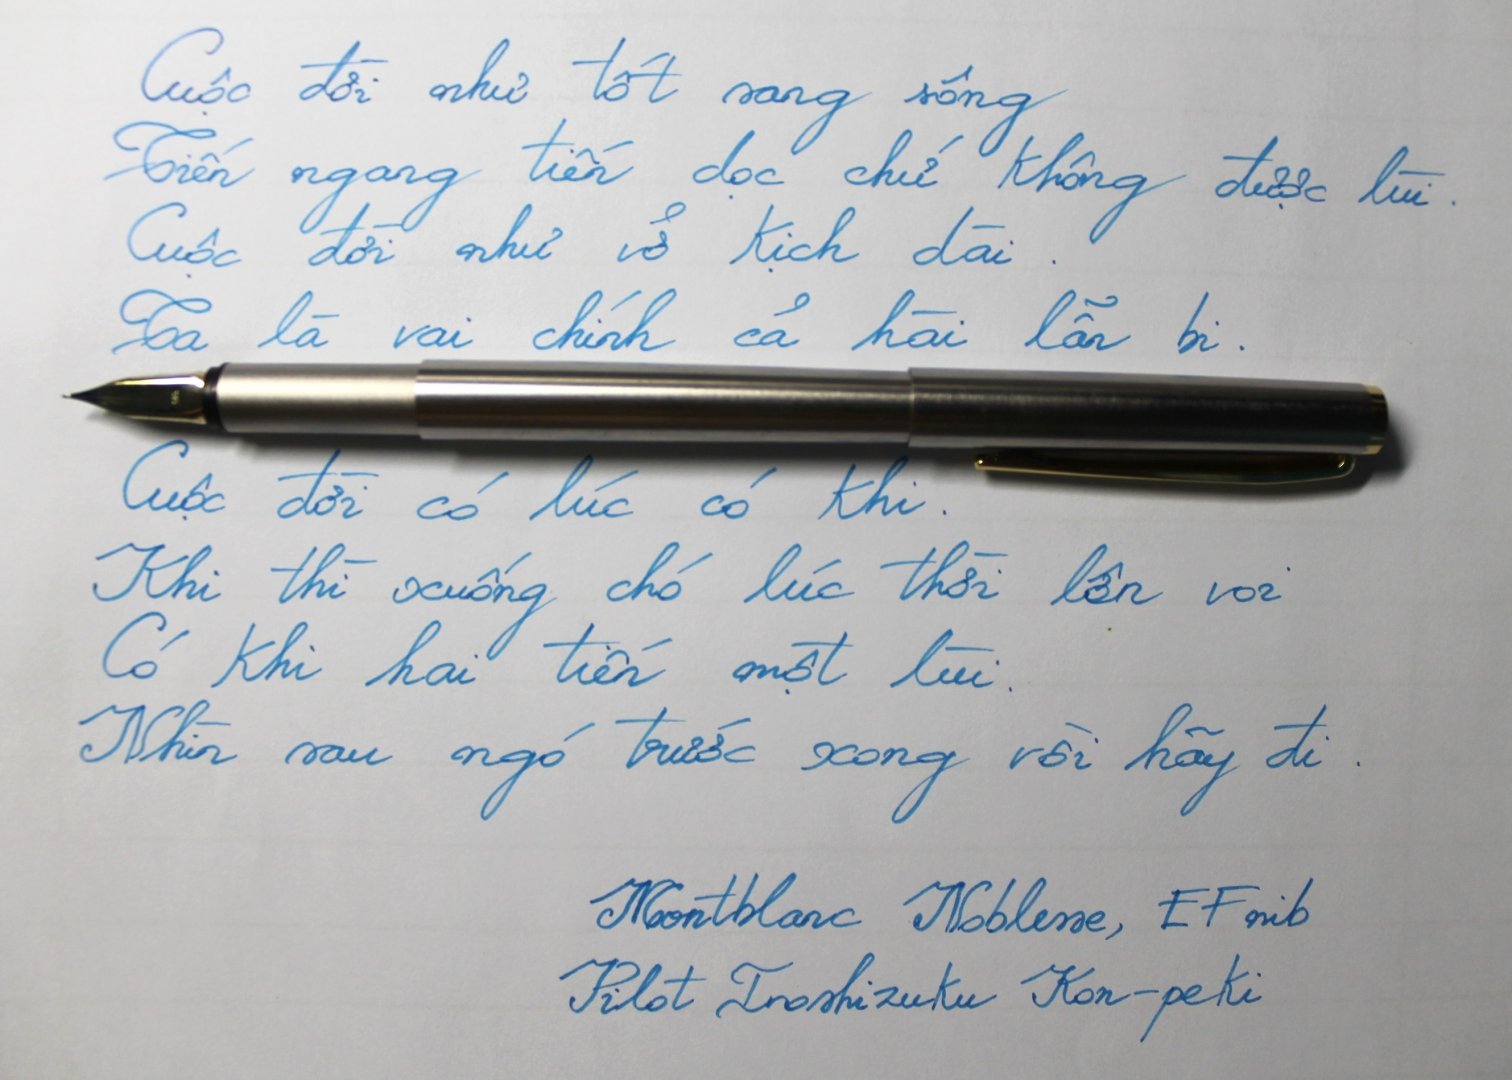 Cuộc đời như tốt sang sông
Tiến ngang tiến dọc chứ không được lùi.
Cuộc đời như vở kịch dài.
Ta là vai chính cả hài lẫn bi.
Cuộc đời có lúc có khi.
Khi thì xuống chó lúc thời lên voi
Có khi hai tiến một lùi.
Nhìn sau ngó trước xong rồi hãy đi.
Montblanc Noblesse, EF nib
Pilot Iroshizuku Kon-peki